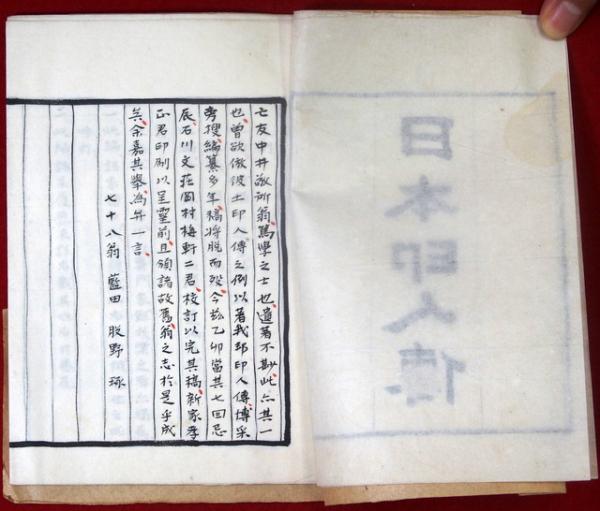 日本印人傳
亡友中井敬所翁篤學之士也遺著不尠此亦其一
也曾欲倣彼土印人傳之例以著我邦印人傳博采
旁搜編纂多年稿將脫而歿今茲乙卯當其七回忌
辰石川文莊岡村梅軒二君校訂以完其稿新家孝
正君印刷以呈靈前且頒諸故舊翁之志於是乎成
矣余嘉其擧為弁一言
七十八翁 藍田 股野 琢